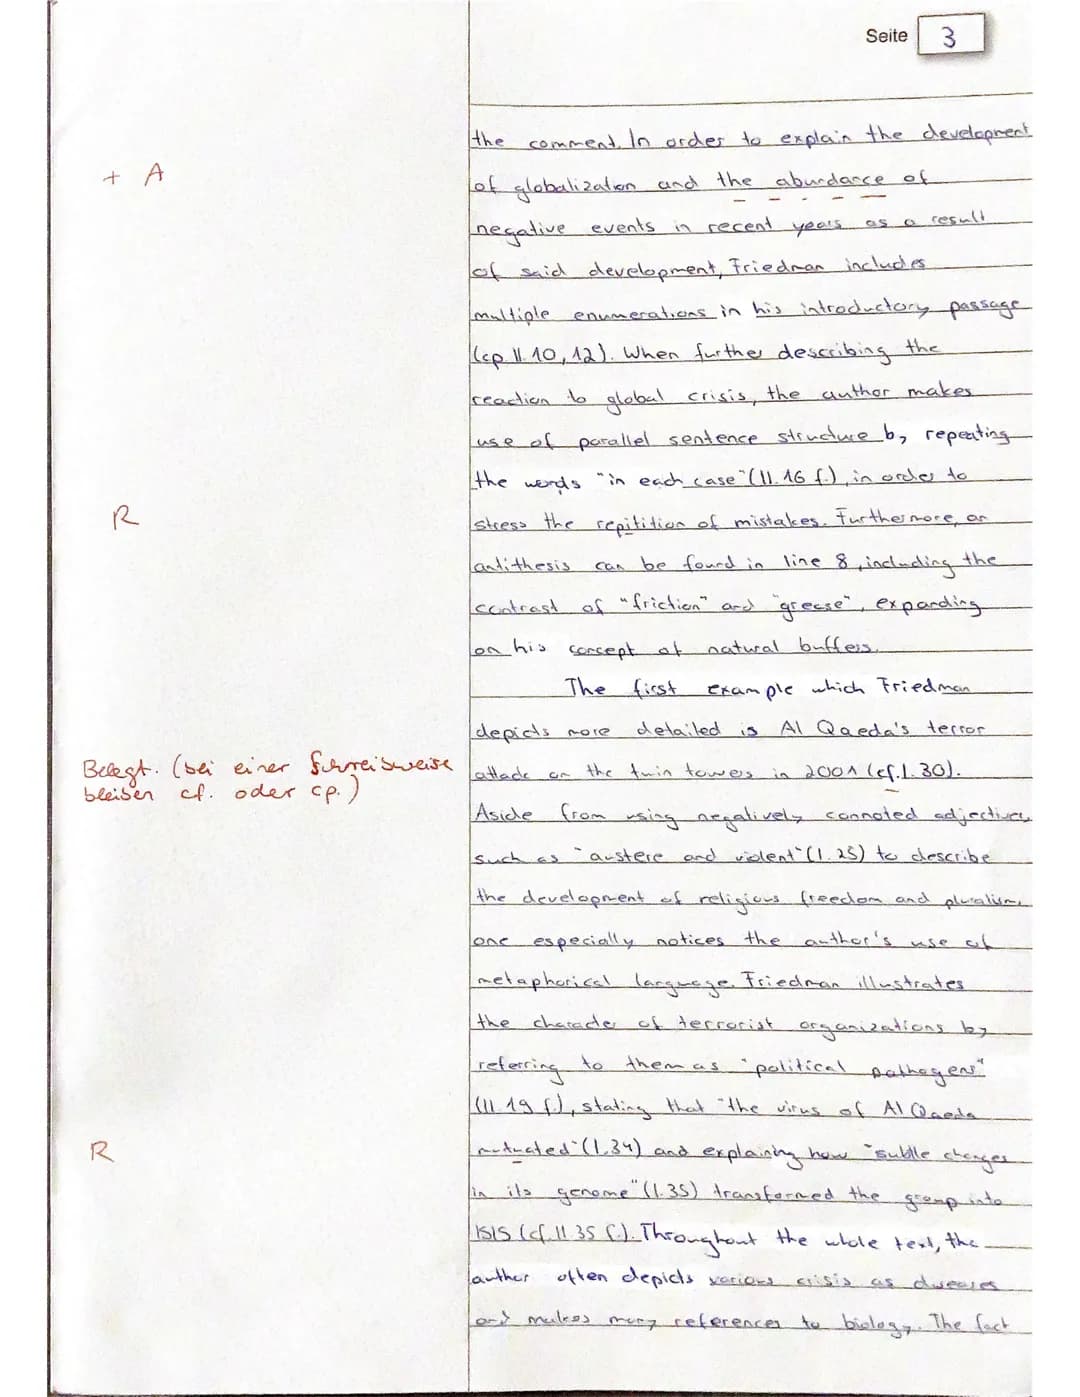 Seite 3
the comment. In order to explain the development
+ A
of globalization and the abundance of
negative events in recent years as a result
of said development, Friedman includes
multiple enumerations in his introductory passage
(cp. ll. 10, 12). When further describing the
reaction to global crisis, the author makes
use of parallel sentence structure by repeating
the words "in each case" (ll. 16 f.), in order to
R
stress the repitition of mistakes. Furthermore, an
antithesis can be found in line 8, including the
contrast of "friction" and "grease", expanding
on his concept of natural buffers.
The first example which Friedman
depicts more detailed is Al Qaeda's terror
Belegt. (bei einer Schreibweise
bleiben cf. oder cp.)
attack on the twin towers in 2001 (cf. l. 30).
Aside from using negatively connoted adjectives
such as "austere and violent" (l. 25) to describe
the development of religious freedom and pluralism,
one especially notices the author's use of
metaphorical language. Friedman illustrates
the character of terrorist organizations by
referring to them as "political pathogens"
(ll. 19 f.), stating that "the virus of Al Qaeda
R
mutuated" (l. 34) and explaining how "subtle changes
in its genome" (l. 35) transformed the group into
ISIS (cf. ll. 35 f.). Throughout the whole text, the
author often depicts various crisis as diseases
and makes many references to biology. The fact